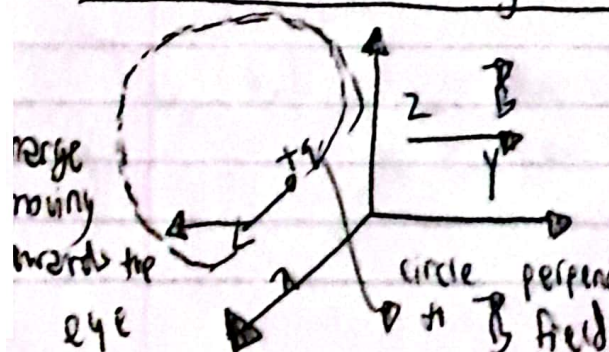 Z B
+q
Y
moving
towards the
eye
circle perpen
to B field